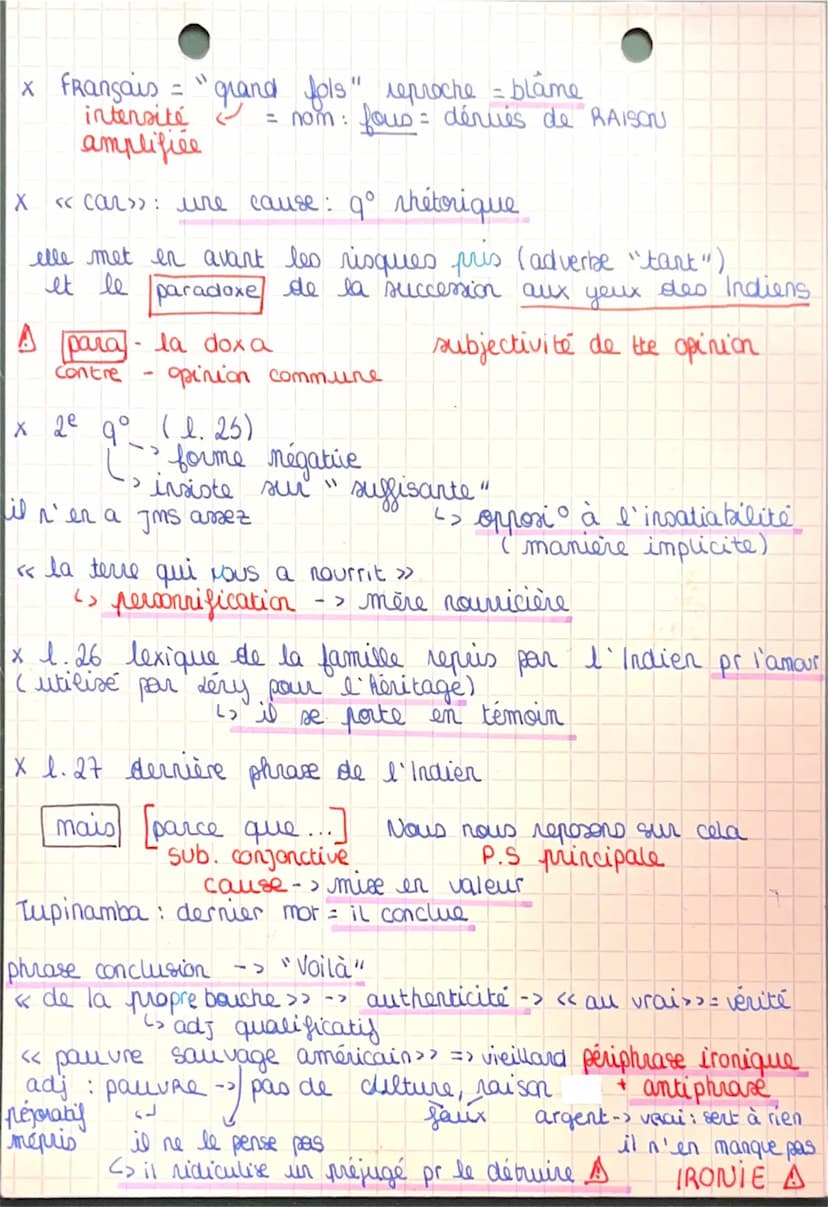 x Français = "grand fols" reproche = blâme
intensité = nom : fous = dénués de RAISON
amplifiée
x << car >> : une cause : q° rhétorique
elle met en avant les risques pris (adverbe "tant")
et le paradoxe de la succession aux yeux des Indiens
⚠ para - la doxa subjectivité de tte opinion
contre - opinion commune
x 2e q° (l. 25)
-> forme négative
-> insiste sur "suffisante"
il n'en a jms assez ↳ opposi° à l'insatiabilité
(manière implicite)
<< la terre qui vous a nourrit >>
↳ personnification -> mère nourricière
x l.26 lexique de la famille repris par l'Indien pr l'amour
(utilisé par Léry pour l'héritage)
↳ il se porte en témoin
x l.27 dernière phrase de l'Indien
mais [parce que...] Nous nous reposons sur cela
sub. conjonctive P.S principale
cause -> mise en valeur
Tupinamba : dernier mot = il conclue
phrase conclusion -> "Voilà"
<< de la propre bouche >> -> authenticité -> << au vrai >> = vérité
↳ adj qualificatif
<< pauvre sauvage américain >> => vieillard périphrase ironique
adj : pauvre -> pas de culture, raison + antiphrase
péjoratif faux argent -> vrai : sert à rien
mépris il ne le pense pas il n'en manque pas
↳ il ridiculise un préjugé pr le détruire ⚠ IRONIE ⚠